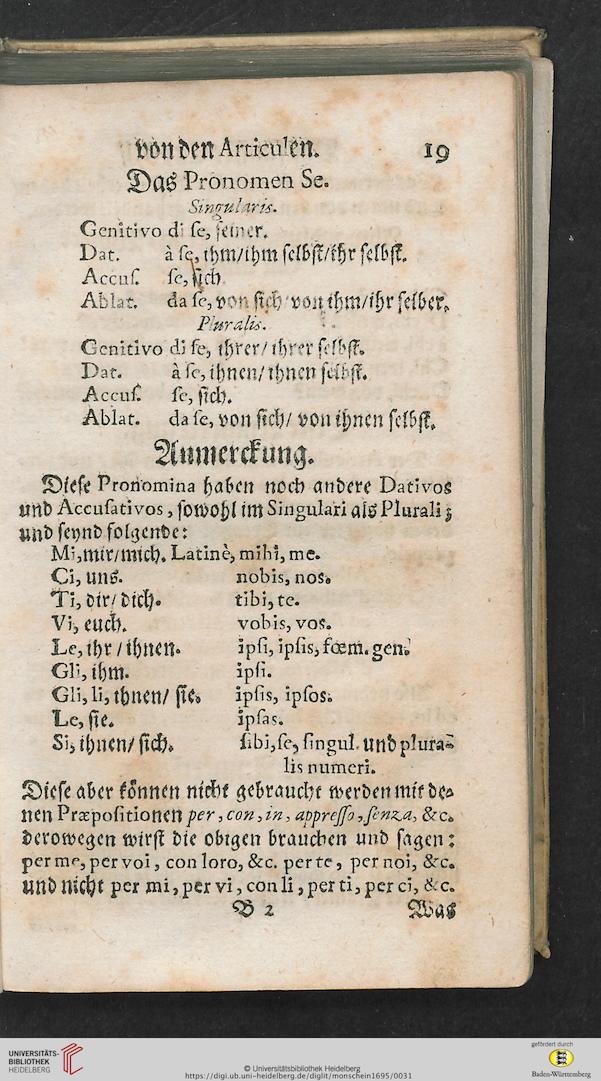 von den Articulen. 19
Das Pronomen Se.
Singularis.
Genitivo di se, seiner.
Dat. à se, ihm/ihm selbst/ihr selbst.
Accus. se, sich
Ablat. da se, von sich von ihm/ihr selber.
Pluralis.
Genitivo di se, ihrer/ ihrer selbst.
Dat. à se, ihnen/ ihnen selbst.
Accus. se, sich.
Ablat. da se, von sich/ von ihnen selbst.
Anmerckung.
Diese Pronomina haben noch andere Dativos
und Accusativos, sowohl im Singulari als Plurali;
und seynd folgende:
Mi, mir/mich. Latinè, mihi, me.
Ci, uns. nobis, nos.
Ti, dir/ dich. tibi, te.
Vi, euch. vobis, vos.
Le, ihr / ihnen. ipsi, ipsis, fœm. gen.
Gli, ihm. ipsi.
Gli, li, ihnen/ sie. ipsis, ipsos.
Le, sie. ipsas.
Si, ihnen/ sich. sibi, se, singul. und plura-
lis numeri.
Diese aber können nicht gebraucht werden mit de-
nen Præpositionen per, con, in, appresso, senza, &c.
derowegen wirst die obigen brauchen und sagen:
per me, per voi, con loro, &c. per te, per noi, &c.
und nicht per mi, per vi, con li, per ti, per ci, &c.
B 2 Was
UNIVERSITÄTS-
BIBLIOTHEK
HEIDELBERG
© Universitätsbibliothek Heidelberg
https://digi.ub.uni-heidelberg.de/diglit/monschein1695/0031
gefördert durch
Baden-Württemberg